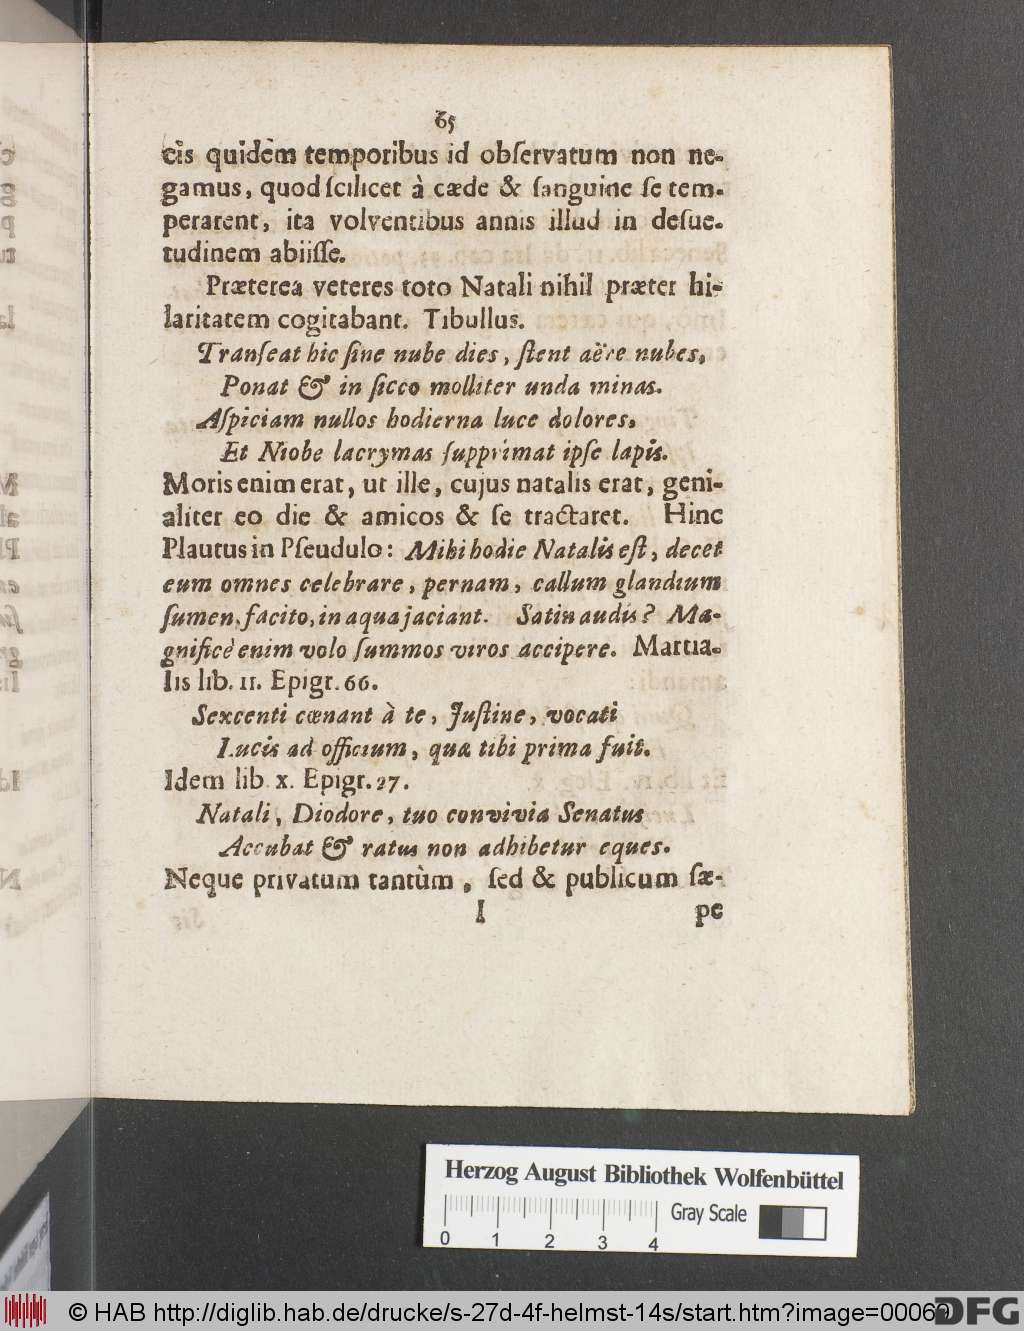 65
cis quidem temporibus id obſervatum non ne-
gamus, quod ſcilicet à cæde & ſanguine ſe tem-
perarent, ita volventibus annis illud in deſue-
tudinem abiiſſe.
Præterea veteres toto Natali nihil præter hi-
laritatem cogitabant. Tibullus.
Tranſeat hic ſine nube dies, ſtent aëre nubes,
Ponat & in ſicco molliter unda minas.
Aſpiciam nullos hodierna luce dolores,
Et Niobe lacrymas ſupprimat ipſe lapis.
Moris enim erat, ut ille, cujus natalis erat, geni-
aliter eo die & amicos & ſe tractaret. Hinc
Plautus in Pſeudulo: Mihi hodie Natalis eſt, decet
eum omnes celebrare, pernam, callum glandium
ſumen, facito, in aqua jaciant. Satin audis? Ma-
gnificè enim volo ſummos viros accipere. Martia-
lis lib. 11. Epigr. 66.
Sexcenti cœnant à te, Juſtine, vocati
Lucis ad officium, quæ tibi prima fuit.
Idem lib. x. Epigr. 27.
Natali, Diodore, tuo convivia Senatus
Accubat & ratus non adhibetur eques.
Neque privatum tantùm, ſed & publicum ſæ-
I pe
Herzog August Bibliothek Wolfenbüttel
Gray Scale
0 1 2 3 4
© HAB http://diglib.hab.de/drucke/s-27d-4f-helmst-14s/start.htm?image=00069
DFG